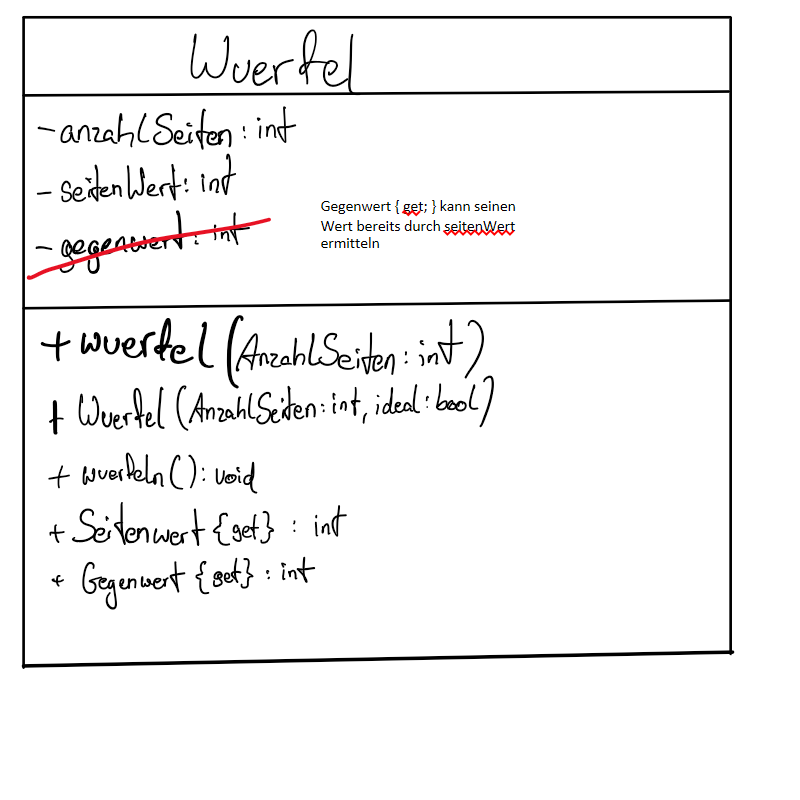 Wuerfel
- anzahlSeiten : int
- seitenWert : int
- gegenwert : int
Gegenwert { get; } kann seinen
Wert bereits durch seitenWert
ermitteln
+ wuerfel (AnzahlSeiten : int)
+ Wuerfel (AnzahlSeiten : int, ideal : bool)
+ wuerfeln () : void
+ Seitenwert {get} : int
+ Gegenwert {get} : int